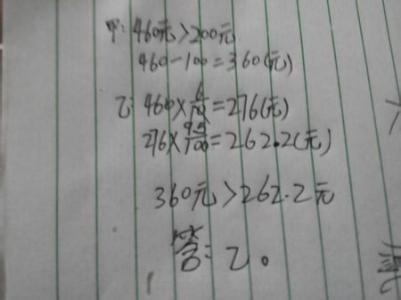 甲:460元>200元
460-100=360(元)
乙:460×6/10=276(元)
276×95/100=262.2(元)
360元>262.2元
答:乙。